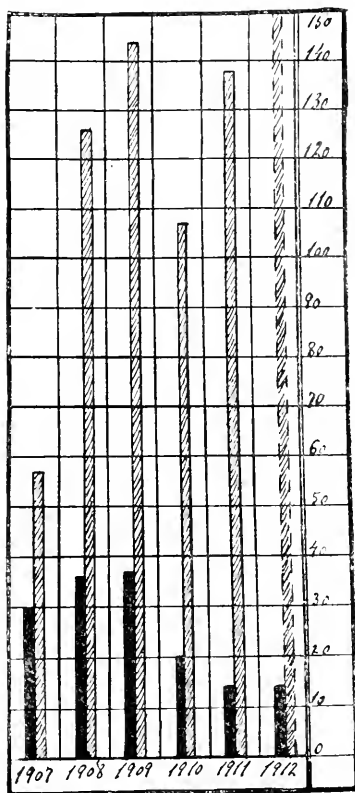 150
140
130
120
110
100
90
80
70
60
50
40
30
20
10
0
1907 1908 1909 1910 1911 1912